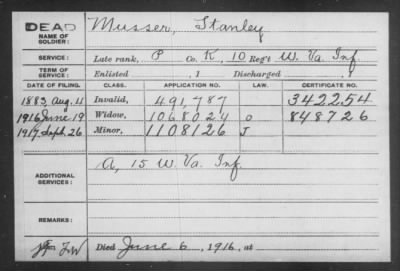 DEAD
NAME OF SOLDIER: Musser, Stanley
SERVICE: Late rank, P Co. K, 10 Reg't W. Va. Inf.
TERM OF SERVICE: Enlisted , 1 Discharged , 1
DATE OF FILING. CLASS. APPLICATION NO. LAW. CERTIFICATE NO.
1883 Aug. 4 Invalid, 491,787 342254
1916 June 19 Widow, 1068024 O 848726
1917 Sept. 26 Minor, 1108126 J
ADDITIONAL SERVICES: A, 15 W. Va. Inf.
REMARKS:
Died June 6, 1916, at